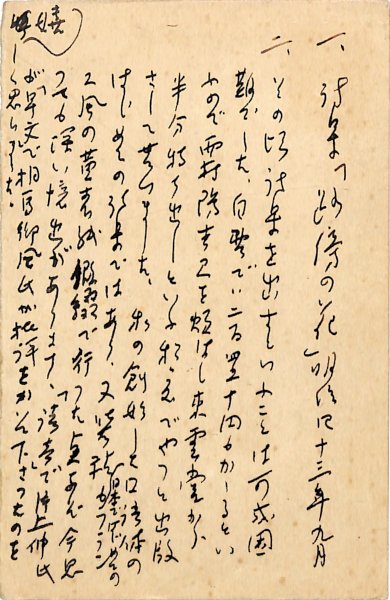 一、詩集「路傍の花」明治四十三年九月
二、その頃詩集を出すといふことは可成困
難でした。自費で二百四十円かゝるとい
ふので西村陽吉君を煩はし東雲堂から
半分持ち出しといふ形でやつと出版
さして貰ひました。私の創始した口語体の
はじめての詩集ではあり、又装幀が日本ではじめてのフランス
風の薄表紙 仮綴で行つた点など今思
つても深い憶出があります、読売で井上 氏
が早文で相馬御風氏が批評をかいて下さつたのを
嬉しく思ひました。